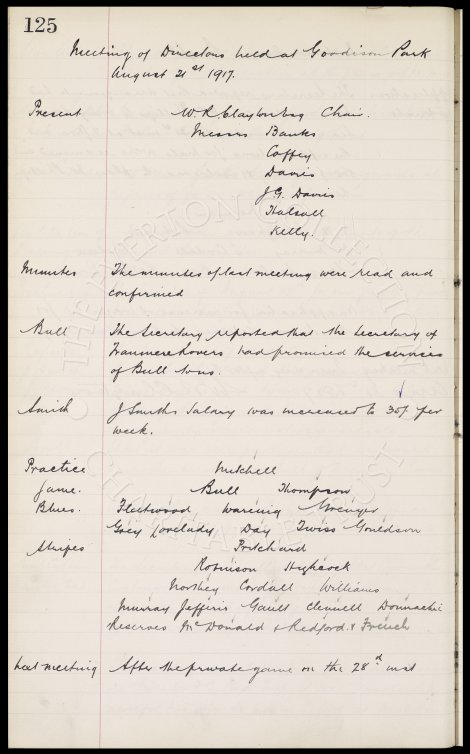 125
Meeting of Directors held at Goodison Park
August 21st 1917.
Present W.R. Clayton Esq Chair.
Messrs Banks
Coffey
Davies
J.G. Davies
Halsall
Kelly.
Minutes The minutes of last meeting were read and
confirmed
Bull The Secretary reported that the Secretary of
Tranmere Rovers had promised the services
of Bull to us.
Smith J Smiths salary was increased to 35/- per
week.
Practice Mitchell
Game. Bull Thompson
Blues. Fleetwood Wareing Grenyer
Grey Lovelady Day Twiss Gouldson
Stripes Pritchard
Robinson Hybcock
Northey Cordall Williams
Murray Jefferis Gault Clennell Donnachie
Reserves McDonald & Redford. & French
Next meeting After the private game on the 28th inst
THE EVERTON COLLECTION
CHARITABLE TRUST